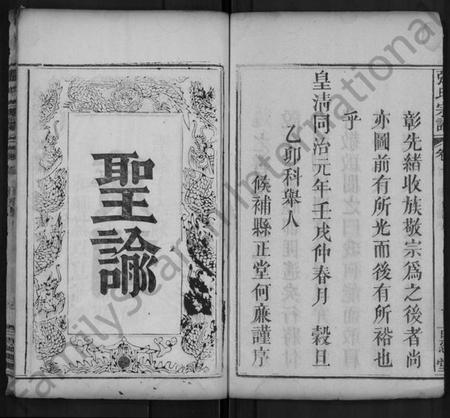 張氏宗譜
卷
彰先緒收族敬宗爲之後者尚
亦圖前有所光而後有所裕也
乎
皇清同治元年壬戌仲春月 穀旦
乙卯科舉人
候補縣正堂何廉謹序
聖諭
FamilySearch International